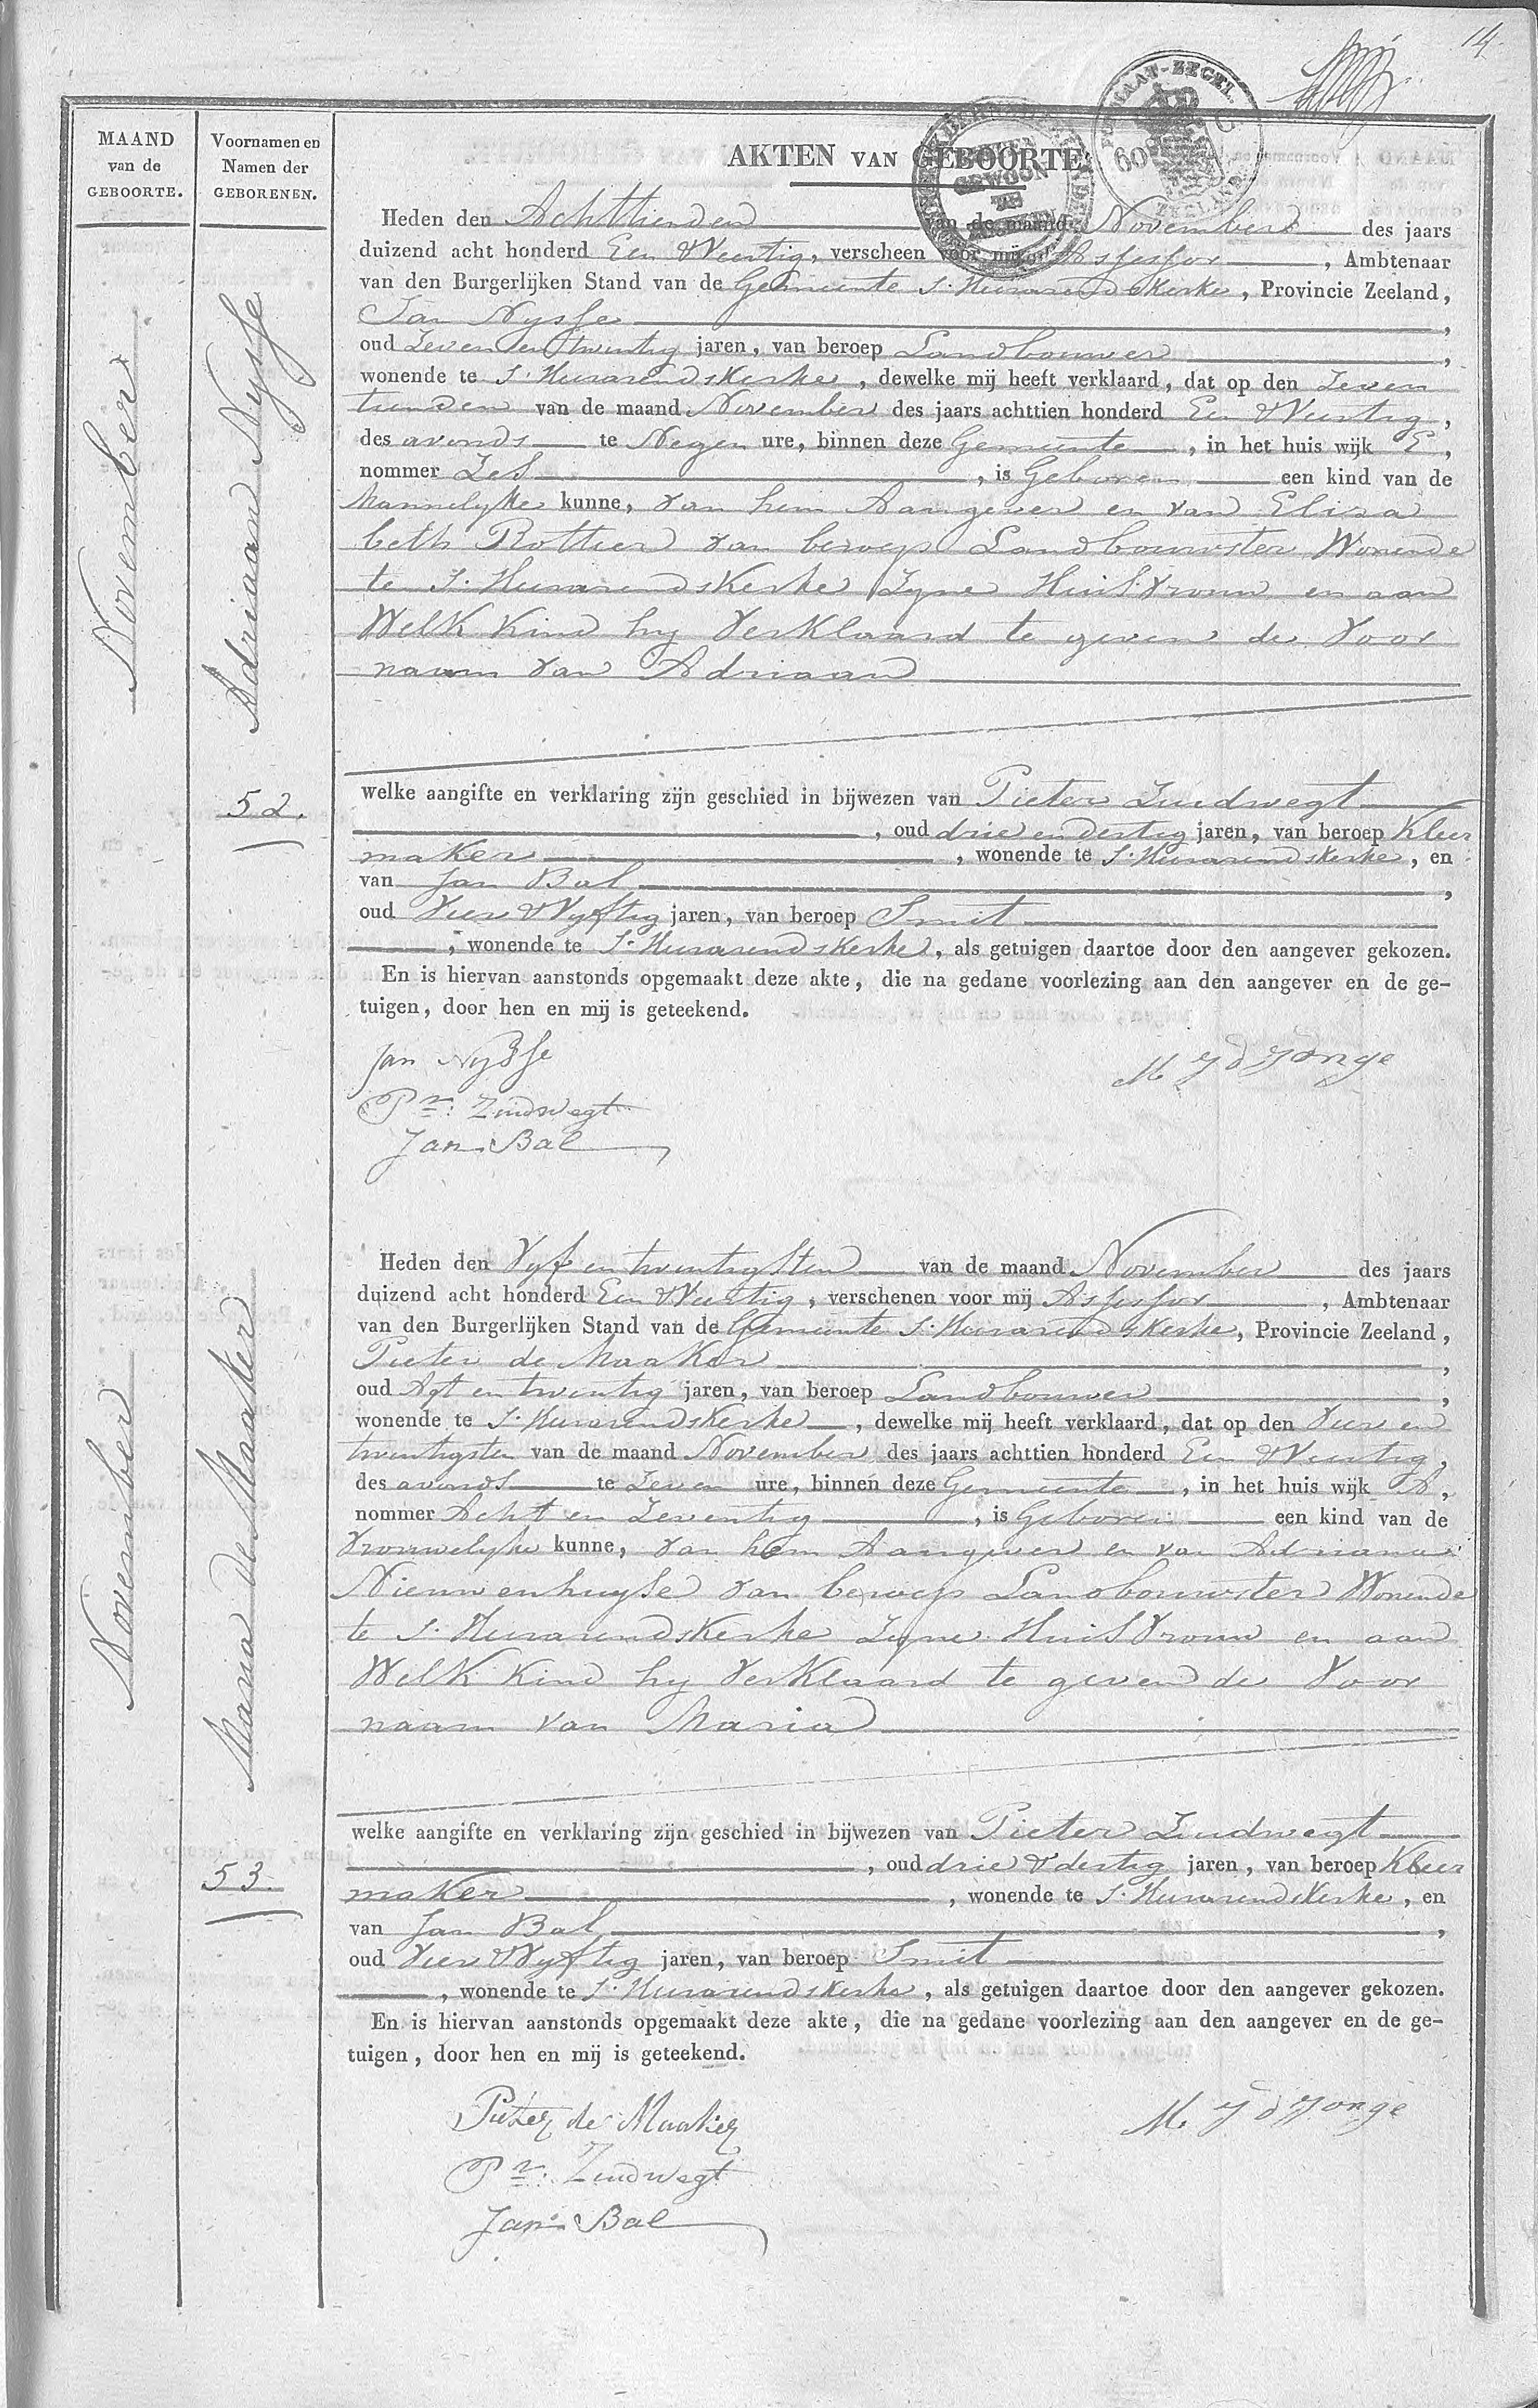 14
AKTEN VAN GEBOORTE
MAAND
van de
GEBOORTE.
Voornamen en
Namen der
GEBORENEN.
November
Adriaan Nysse
52.
Heden den Achttienden van de maand November des jaars
duizend acht honderd Een & Veertig, verscheen voor mij Assessor, Ambtenaar
van den Burgerlijken Stand van de Gemeente S. Heerarendskerke, Provincie Zeeland,
Jan Nysse,
oud Zeven en twintig jaren, van beroep Landbouwer,
wonende te S. Heerarendskerke, dewelke mij heeft verklaard, dat op den Zeven
tienden van de maand November des jaars achttien honderd Een & Veertig,
des avonds te Negen ure, binnen deze Gemeente, in het huis wijk E,
nommer Zes, is Geboren een kind van de
Mannelyke kunne, van hem Aangever en van Eliza
beth Rottier van beroep Landbouwster Wonende
te S. Heerarendskerke Zyne Huisvrouw en aan
Welk Kind hy Verklaard te geven de Voor
naam van Adriaan
welke aangifte en verklaring zijn geschied in bijwezen van Pieter Zuidwegt
, oud drie en dertig jaren, van beroep Kleer
maker, wonende te S. Heerarendskerke, en
van Jan Bal,
oud Vier & Vyftig jaren, van beroep Smit
, wonende te S. Heerarendskerke, als getuigen daartoe door den aangever gekozen.
En is hiervan aanstonds opgemaakt deze akte, die na gedane voorlezing aan den aangever en de ge-
tuigen, door hen en mij is geteekend.
Jan Nysse
M J d Jonge
Pr: Zuidwegt
Jan Bal
November
Maria de Maaker
53.
Heden den Vyf en twintigsten van de maand November des jaars
duizend acht honderd Een & Veertig, verschenen voor mij Assessor, Ambtenaar
van den Burgerlijken Stand van de Gemeente S. Heerarendskerke, Provincie Zeeland,
Pieter de Maaker,
oud Agt en twintig jaren, van beroep Landbouwer,
wonende te S. Heerarendskerke, dewelke mij heeft verklaard, dat op den Vier en
twintigsten van de maand November des jaars achttien honderd Een & Veertig,
des avonds te Zeven ure, binnen deze Gemeente, in het huis wijk A,
nommer Acht en Zeventig, is Geboren een kind van de
Vrouwelyke kunne, van hem Aangever en van Adriana
Nieuwenhuyse van beroep Landbouwster Wonende
te S. Heerarendskerke Zyne Huisvrouw en aan
Welk Kind hy Verklaard te geven de Voor
naam van Maria
welke aangifte en verklaring zijn geschied in bijwezen van Pieter Zuidwegt
, oud drie & dertig jaren, van beroep Kleer
maker, wonende te S. Heerarendskerke, en
van Jan Bal,
oud Vier & Vyftig jaren, van beroep Smit
, wonende te S. Heerarendskerke, als getuigen daartoe door den aangever gekozen.
En is hiervan aanstonds opgemaakt deze akte, die na gedane voorlezing aan den aangever en de ge-
tuigen, door hen en mij is geteekend.
Pieter de Maaker
M J d Jonge
Pr: Zuidwegt
Jan Bal